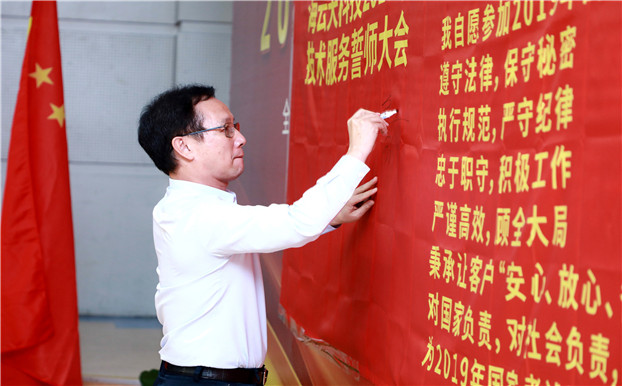 20
海云天科技20
技术服务誓师大会
全
我自愿参加2019年
遵守法律，保守秘密
执行规范，严守纪律
忠于职守，积极工作
严谨高效，顾全大局
秉承让客户“安心、放心、
对国家负责，对社会负责，
为2019年国家